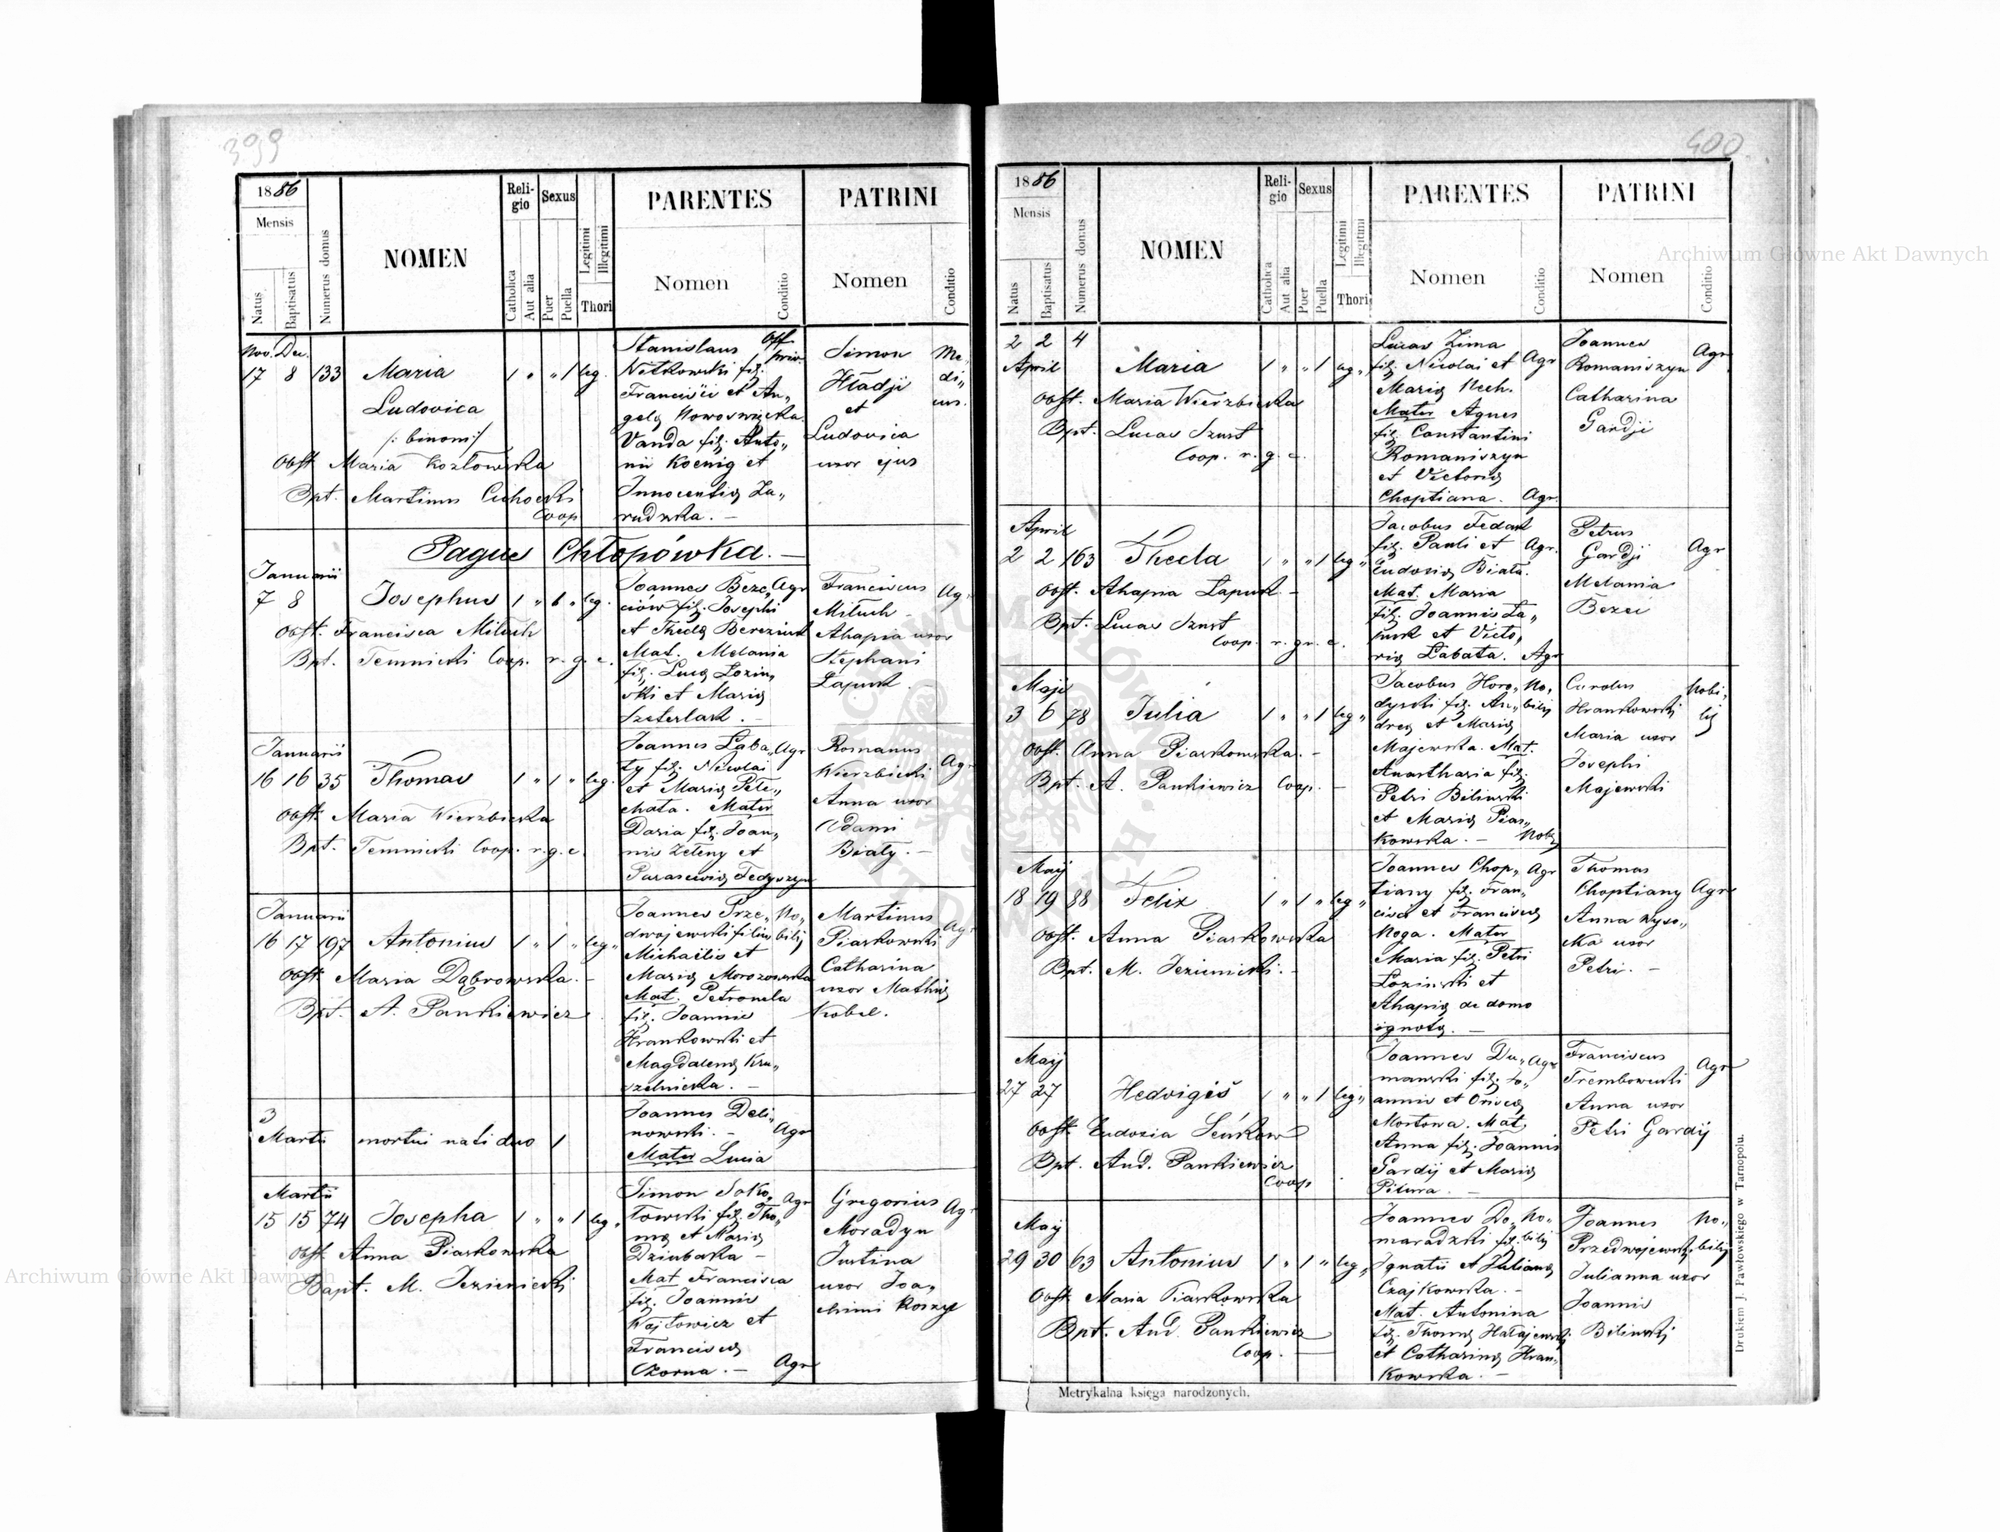 399
1886
Mensis
Natus
Baptisatus
Numerus domus
NOMEN
Reli-
gio
Catholica
Aut alia
Sexus
Puer
Puella
Legitimi
Illegitimi
Thori
PARENTES
Nomen
Conditio
PATRINI
Nomen
Conditio
Nov. Dec.
17 8 133 Maria
Ludovica
/: binom:/
Obst. Maria Kozłowska
Bpt. Martinus Cichocki
Coop
1 " " 1 leg.
Stanislaus Off
Netkowski fil. priv.
Francisci et An„
gelą Nowosvięcka
Vanda fil. Anto„
nii Koenig et
Innocentią Za„
rudzka. —
Simon Me„
Hładji di„
et cus.
Ludovica
uxor ejus
Pagus Chłopówka. —
Januarii
7 8 Josephus 1 " 1 " leg.
Obst. Francisca Mituch
Bpt. Temnicki Coop. r. g. c.
Joannes Beze„ Agr
ciów fil. Josephi
et Theclą Bereziuk
Mat. Melania
fil. Lucą Lozin„
ski et Marią
Szeterlak. —
Franciscus Agr
Mituch —
Ahapia uxor
Stephani
Lapuk —
Januarii
16 16 35 Thomas 1 " 1 " leg.
Obst. Maria Wierzbicka
Bpt. Temnicki Coop. r. g. c.
Joannes Łaba„ Agr
ty fil. Nicolai
et Marią Pele„
chata. Mater
Daria fil. Joan„
nis Zeleny et
Parascevią Fedyszyn
Romanus
Wierzbicki Agr
Anna uxor
Adami
Biały. —
Januarii
16 17 197 Antonius 1 " 1 " leg„
Obst. Maria Dąbrowska. —
Bpt. A. Pankiewicz
Joannes Prze„ No„
dwojewski filius bilis
Michaëlis et
Marią Morozowska
Mat. Petronela
fil. Joannis
Hrankowski et
Magdaleną Kru„
szelnicka. —
Martinus
Piaskowski Agr
Catharina
uxor Mathią
Kobel.
3
Martii mortui nati duo 1
Joannes Deli„
nowski. — Agr
Mater Lucia
Martii
15 15 74 Josepha 1 " " 1 leg„
Obst Anna Piaskowska
Bapt. M. Jezienicki
Simon Soko„ Agr
łowski fil. Tho„
mą et Marią
Dziubaska —
Mat Francisca
fil. Joannis
Wojtowicz et
Francisca
Czorna. — Agr
Gregorius Agr
Moradyn
Justina
uxor Joa„
chimi Koszyl
400
1886
Mensis
Natus
Baptisatus
Numerus domus
NOMEN
Reli-
gio
Catholica
Aut alia
Sexus
Puer
Puella
Legitimi
Illegitimi
Thori
PARENTES
Nomen
Conditio
PATRINI
Nomen
Conditio
2 2 4
April Maria 1 " " 1
Obst. Maria Wierzbicka
Bpt. Lucas Szust
Coop. r. g. c.
Lucas Zima
fil. Nicolai et Agr
Marią Nech.
Mater Agnes
fil. Constantini
Romaniszyn
et Victorią
Choptiana. Agr.
Joannes Agr
Romaniszyn
Catharina
Gardji
April
2 2 163 Thecla 1 " " 1 leg„
Obst. Ahapia Lapuk —
Bpt. Lucas Szust
Coop. r. gr. c.
Jacobus Fedak
fil. Pauli et Agr.
Eudoxią Biała.
Mat. Maria
fil. Joannis La„
puk et Victo„
rią Łabata. Agr
Petrus
Gardji Agr
Melania
Bezei
Maji
3 6 78 Julia 1 " " 1 leg„
Obst. Anna Piaskowska. —
Bpt. A. Pankiewicz Coop. —
Jacobus Horo„ No„
dyski fil. An„ bilis
dreą et Marią
Majewska. Mat.
Anasthasia fil.
Petri Bilinski
et Marią Pias„
kowska. — Nobs
Carolus Nobi„
Hrankowski lis
Maria uxor
Josephi
Majewski
Maij
18 19 88 Felix 1 " 1 " leg„
Obst. Anna Piaskowska
Bpt. M. Jezienicki. —
Joannes Chop„ Agr
tiany fil. Fran„
cisci et Francisca
Noga. Mater
Maria fil. Petri
Lozinski et
Ahapią de domo
ignotą. —
Thomas
Choptiany Agr
Anna Wyso„
ka uxor
Petri. —
Maij
27 27 Hedvigis 1 " " 1 leg„
Obst. Eudoxia Senkow
Bpt. And. Pankiewicz
Coop
Joannes Du„ Agr
manski fil. Jo„
annis et
Mortowa. Mat.
Anna fil. Joannis
Gardij et Marią
Pitura. —
Franciscus
Trembowecki Agr
Anna uxor
Petri Gardij
Maij
29 30 63 Antonius 1 " 1 " leg„
Obst. Maria Piaskowska
Bpt. And. Pankiewicz
Coop. —
Joannes Do„ No„
maradzki fil. bilis
Ignatii et Julianą
Czajkowska. —
Mat. Antonina
fil. Thomą Hałajewski
et Cathariną Hran„
kowska. —
Joannes No„
Przedwojewski bilis
Julianna uxor
Joannis
Bilinskij
Metrykalna księga narodzonych.
Drukiem J. Pawłowskiego w Tarnopolu.
Archiwum Główne Akt Dawnych
Archiwum Główne Akt Dawnych